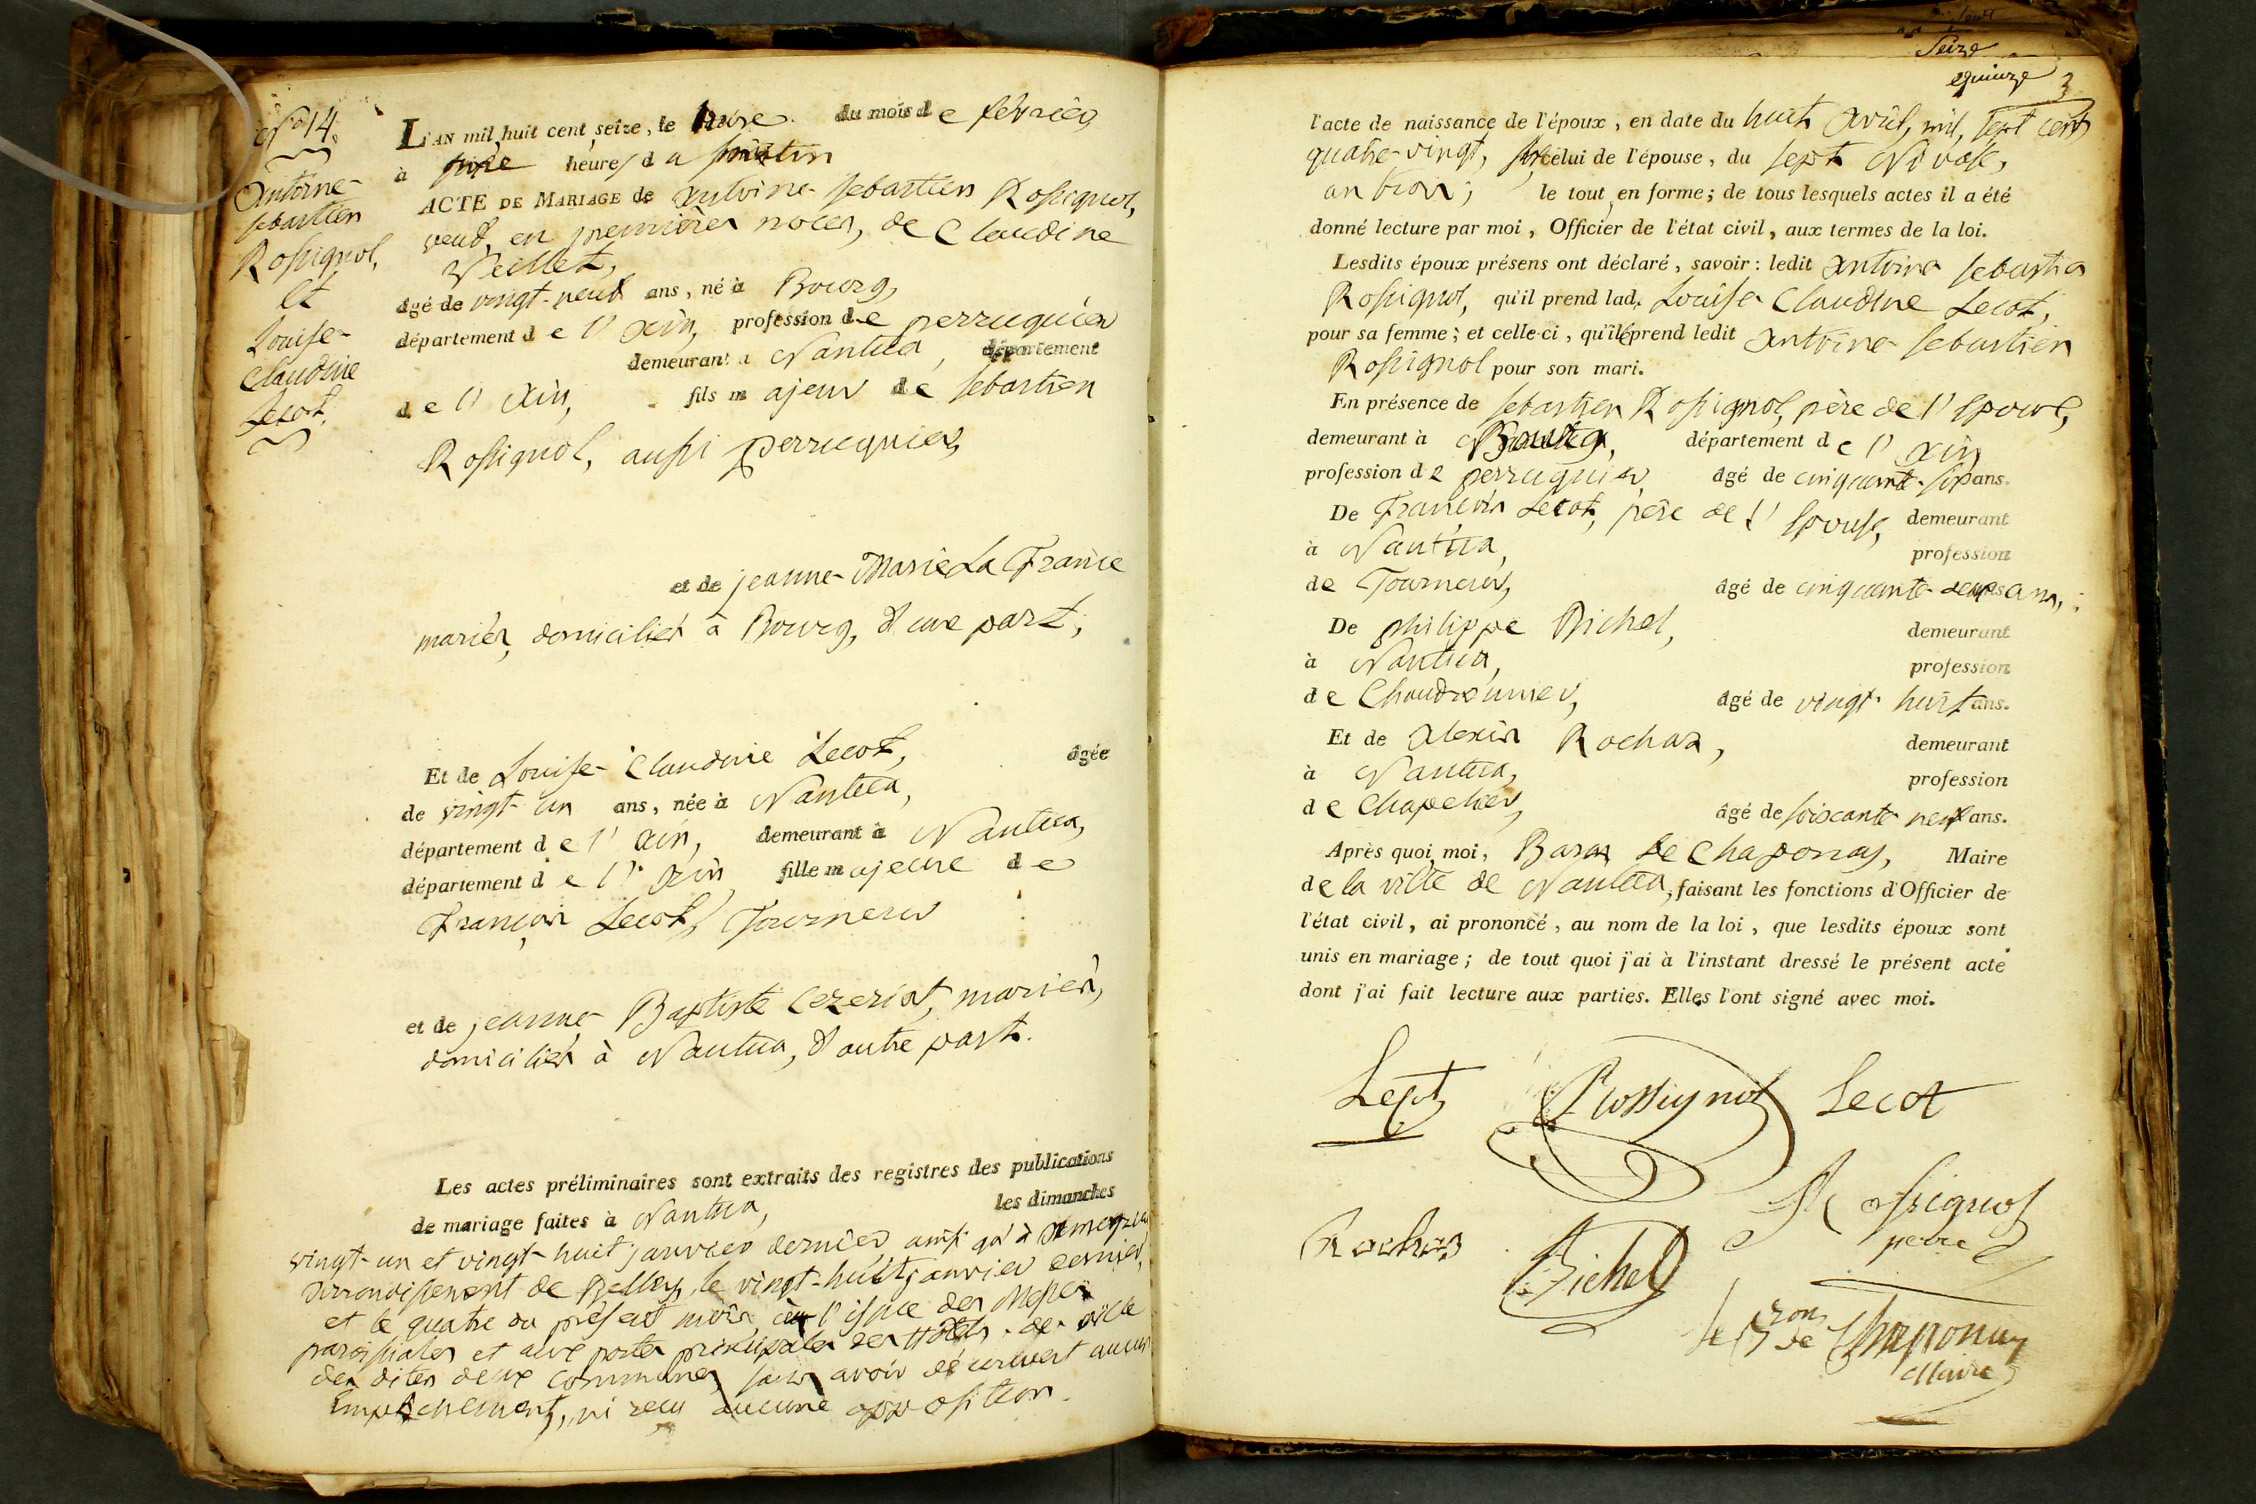 N.° 14.
Antoine-
sebastien
Rossignol,
Et
Louise-
Claudine
Lecot.
L'AN mil huit cent seize, le du mois de février
à heures da matin
ACTE DE MARIAGE de antoine-sebastien Rossignol,
veuf en premières noces, de Claudine
Veillet,
âgé de vingt-neuf ans, né à Bourg,
département de l'ain, profession de perruquier
demeurant à Nantua, département
de l'ain, fils majeur de sebastien
Rossignol, aussi perruquier,
et de jeanne-Marie La France
mariés, domiciliés à Bourg, d'une part;
Et de Louise-Claudine Lecot, âgée
de vingt-un ans, née à Nantua,
département de l'ain, demeurant à Nantua,
département de l'ain fille majeure de
François Lecot, Tourneur
et de jeanne-Baptiste Cezeriat, mariés,
domiciliés à Nantua, d'autre part.
Les actes préliminaires sont extraits des registres des publications
de mariage faites à Nantua, les dimanches
vingt-un et vingt-huit janvier dernier ainsi qu'à
arrondissement de Belley, le vingt-huit janvier dernier,
et le quatre du présent mois, à l'issue des Messes
paroissiales et aux portes principales des Hôtels de ville
des dites deux communes, sans avoir découvert aucun
Empêchement, ni reçu aucune opposition.
Seize
quinze
3
l'acte de naissance de l'époux, en date du huit avril, mil, sept cent
quatre-vingt, celui de l'épouse, du sept Nivose,
an trois; le tout en forme; de tous lesquels actes il a été
donné lecture par moi, Officier de l'état civil, aux termes de la loi.
Lesdits époux présens ont déclaré, savoir: ledit antoine sebastien
Rossignol, qu'il prend lad. Louise Claudine Lecot,
pour sa femme; et celle-ci, qu'il prend ledit antoine-sebastien
Rossignol pour son mari.
En présence de sebastien Rossignol, père de l'Epoux,
demeurant à Bourg, département de l'ain
profession de perruquier âgé de cinquante-six ans.
De François Lecot, père de l'Epouse, demeurant
à Nantua, profession
de Tourneur, âgé de cinquante-deux ans,
De philippe Bichel, demeurant
à Nantua, profession
de Chaudronnier, âgé de vingt-huit ans.
Et de alexis Rochas, demeurant
à Nantua, profession
de Chapelier, âgé de soixante neuf ans.
Après quoi, moi, Baron de Chaponay, Maire
de la ville de Nantua, faisant les fonctions d'Officier de
l'état civil, ai prononcé, au nom de la loi, que lesdits époux sont
unis en mariage; de tout quoi j'ai à l'instant dressé le présent acte
dont j'ai fait lecture aux parties. Elles l'ont signé avec moi.
Lecot Rossignol Lecot
Rossignol
pere
Rochas Bichel
le Bron de Chaponay
Maire